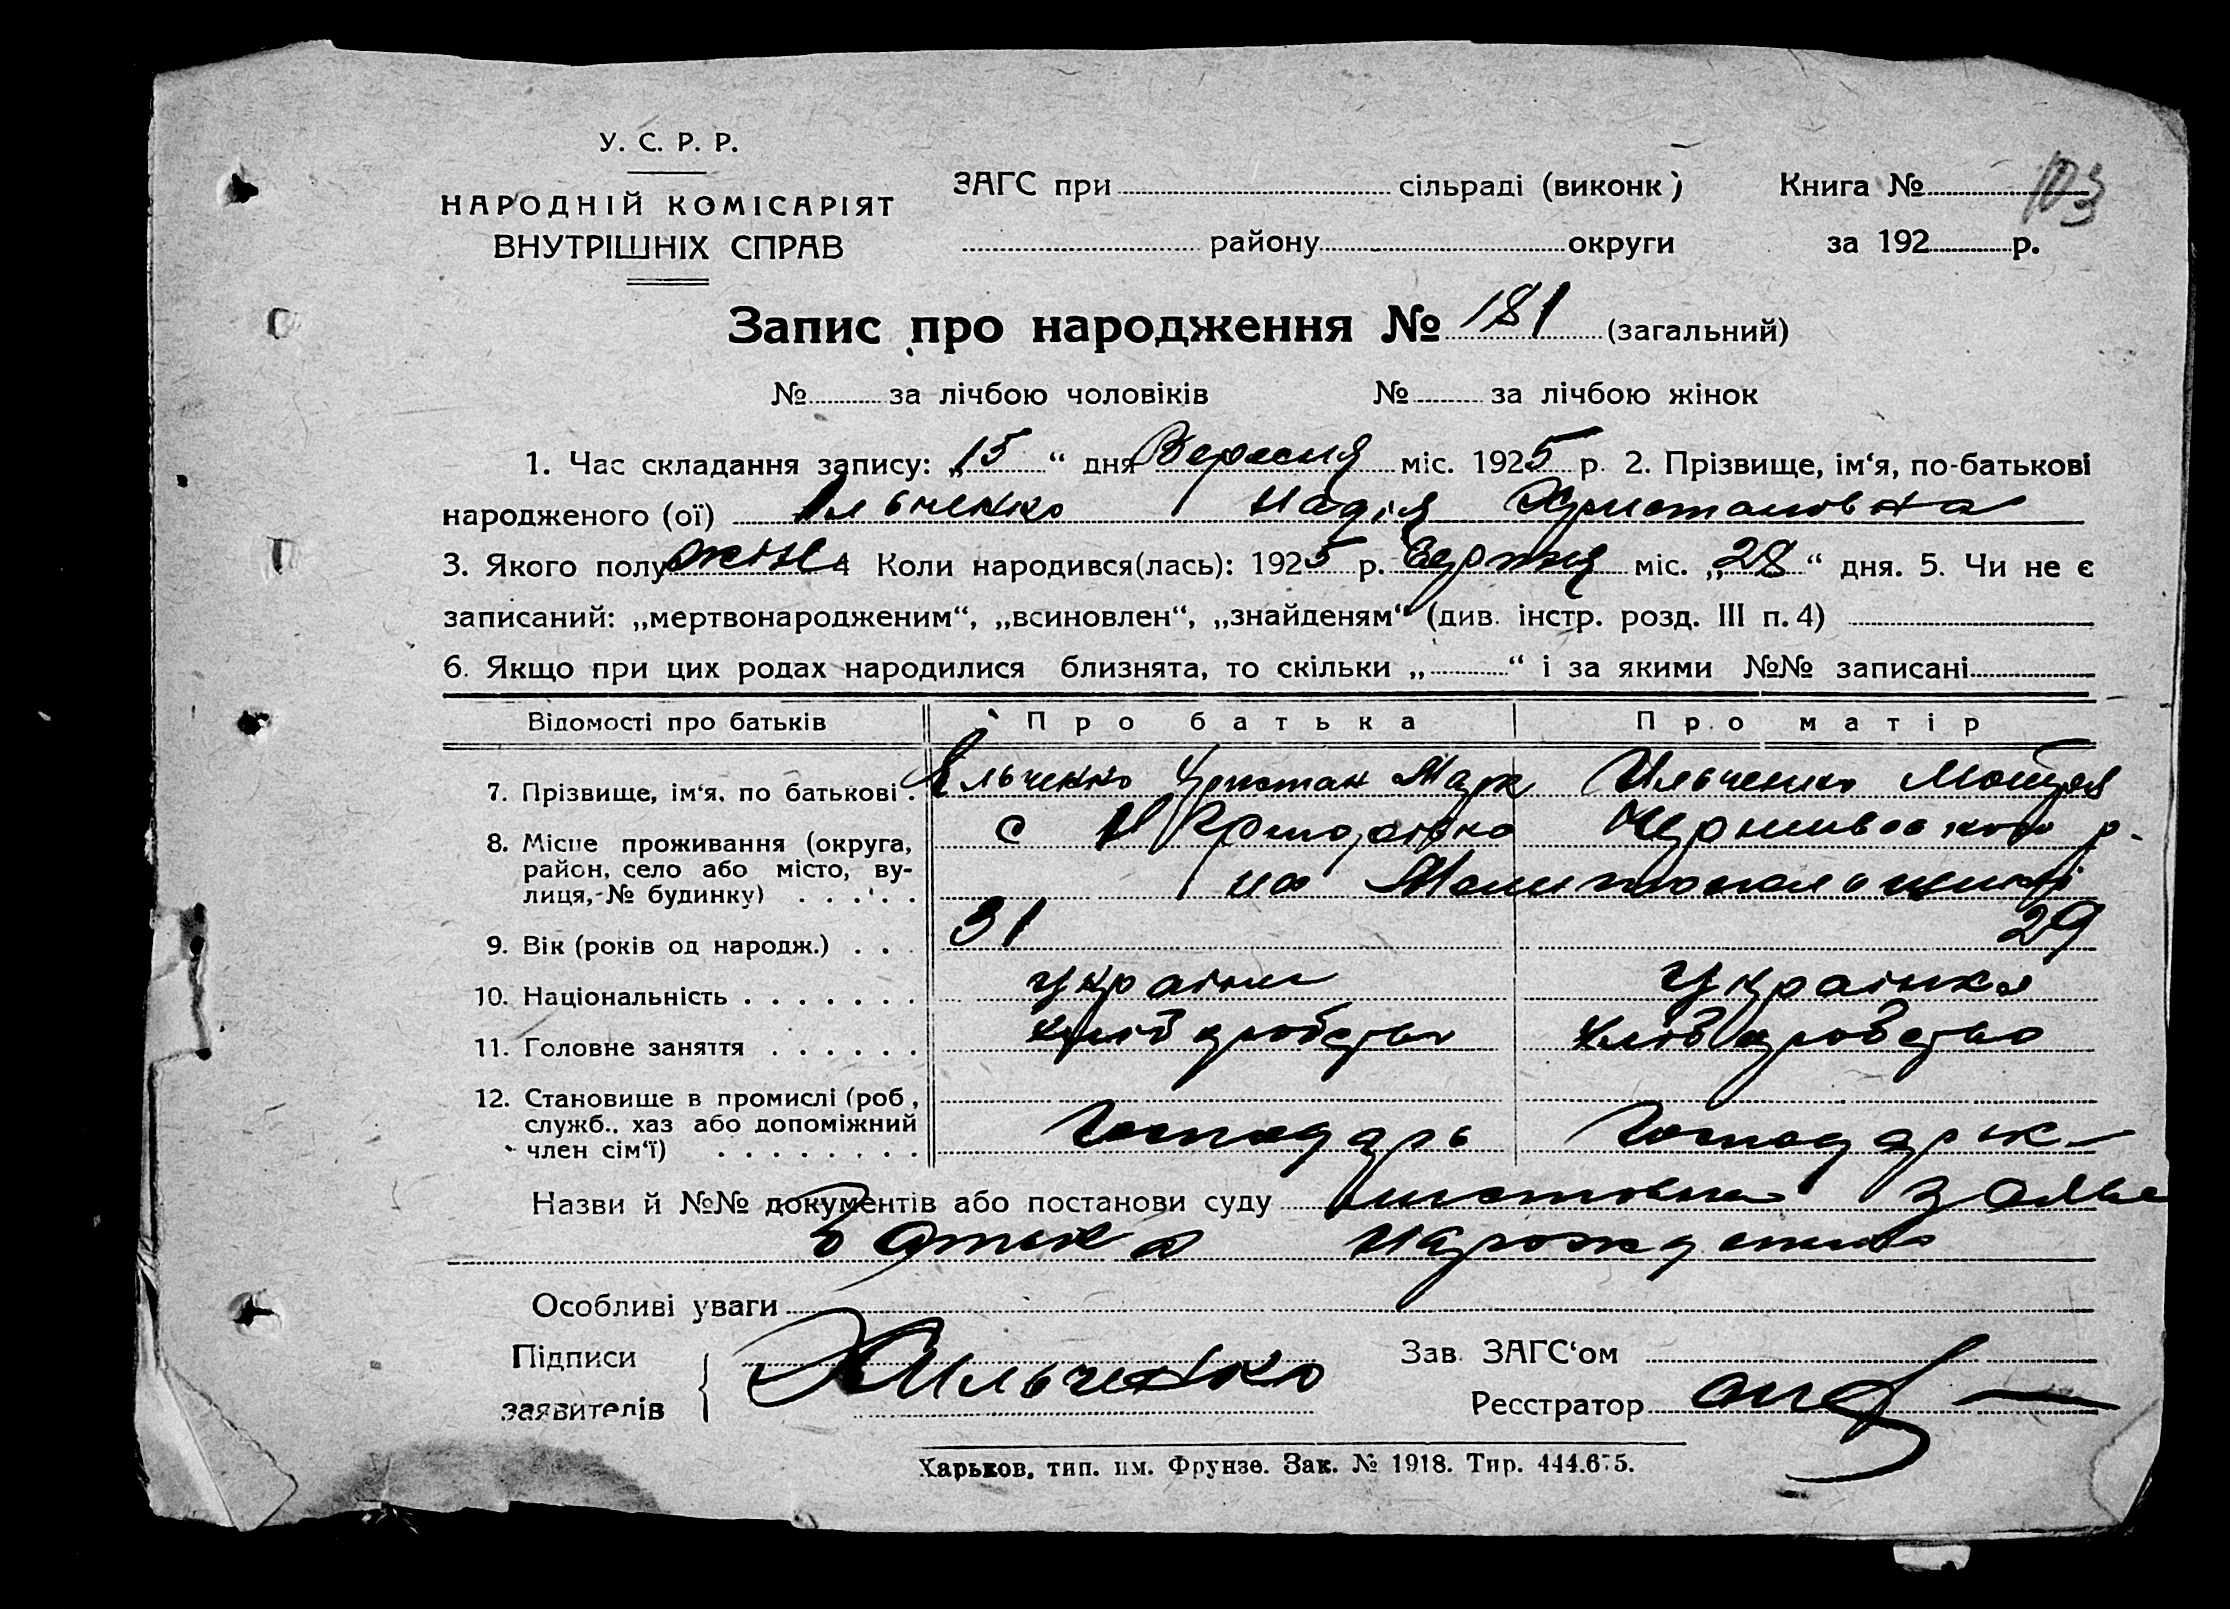 У. С. Р. Р.
НАРОДНІЙ КОМІСАРІЯТ
ВНУТРІШНІХ СПРАВ
ЗАГС при сільраді (виконк)
району округи
Книга № 103
за 192 р.
Запис про народження № 181 (загальний)
№ за лічбою чоловіків № за лічбою жінок
1. Час складання запису: „15“ дня Вересня міс. 1925 р. 2. Прізвище, ім‘я, по-батькові
народженого (ої) Ільченко Надія Христановна
3. Якого полу жін 4 Коли народився(лась): 1925 р. Серпня міс. „28“ дня. 5. Чи не є
записаний: „мертвонародженим“, „всиновлен“, „знайденям“ (див. інстр. розд. III п. 4)
6. Якщо при цих родах народилися близнята, то скільки „ “ і за якими №№ записані
Відомості про батьків Про батька Про матір
7. Прізвище, ім‘я, по батькові . Ільченко Христан Марк Ильченко Мотря
8. Місце проживання (округа, с
район, село або місто, ву-
лиця, № будинку) . . . . . на Мелитопольщині
9. Вік (років од народж.) . . . 31 29
10. Національність . . . . . . . українец Українка
11. Головне заняття . . . . . . хліборобство хліборобство
12. Становище в промислі (роб,
служб., хаз або допоміжний Господарь Господарк
член сім‘ї) . . . . . . . .
Назви й №№ документів або постанови суду заява
батька
Особливі уваги
Підписи Х Ильченко Зав. ЗАГС‘ом
заявителів Ресстратор
Харьков, тип. им. Фрунзе. Зак. № 1918. Тир. 444.675.